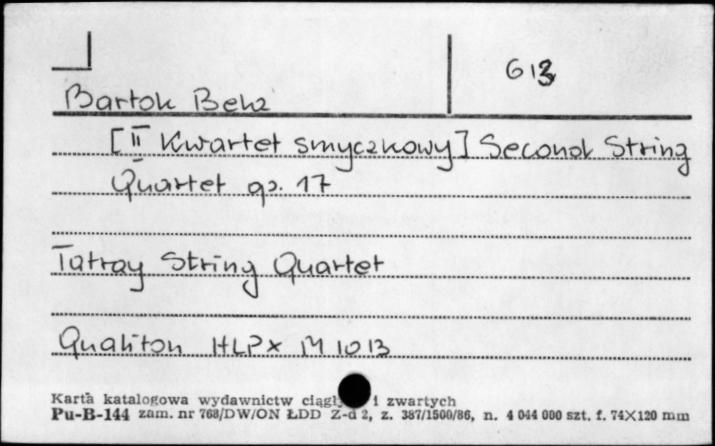 613
Bartok Bela
[II Kwartet smyczkowy] Second String
Quartet op. 17
Tatray String Quartet
Qualiton HLPX M 1013
Karta katalogowa wydawnictw i zwartych
Pu-B-144 zam. nr 768/DW/ON ŁDD Z-d 2, z. 387/1500/86, n. 4 044 000 szt. f. 74X120 mm